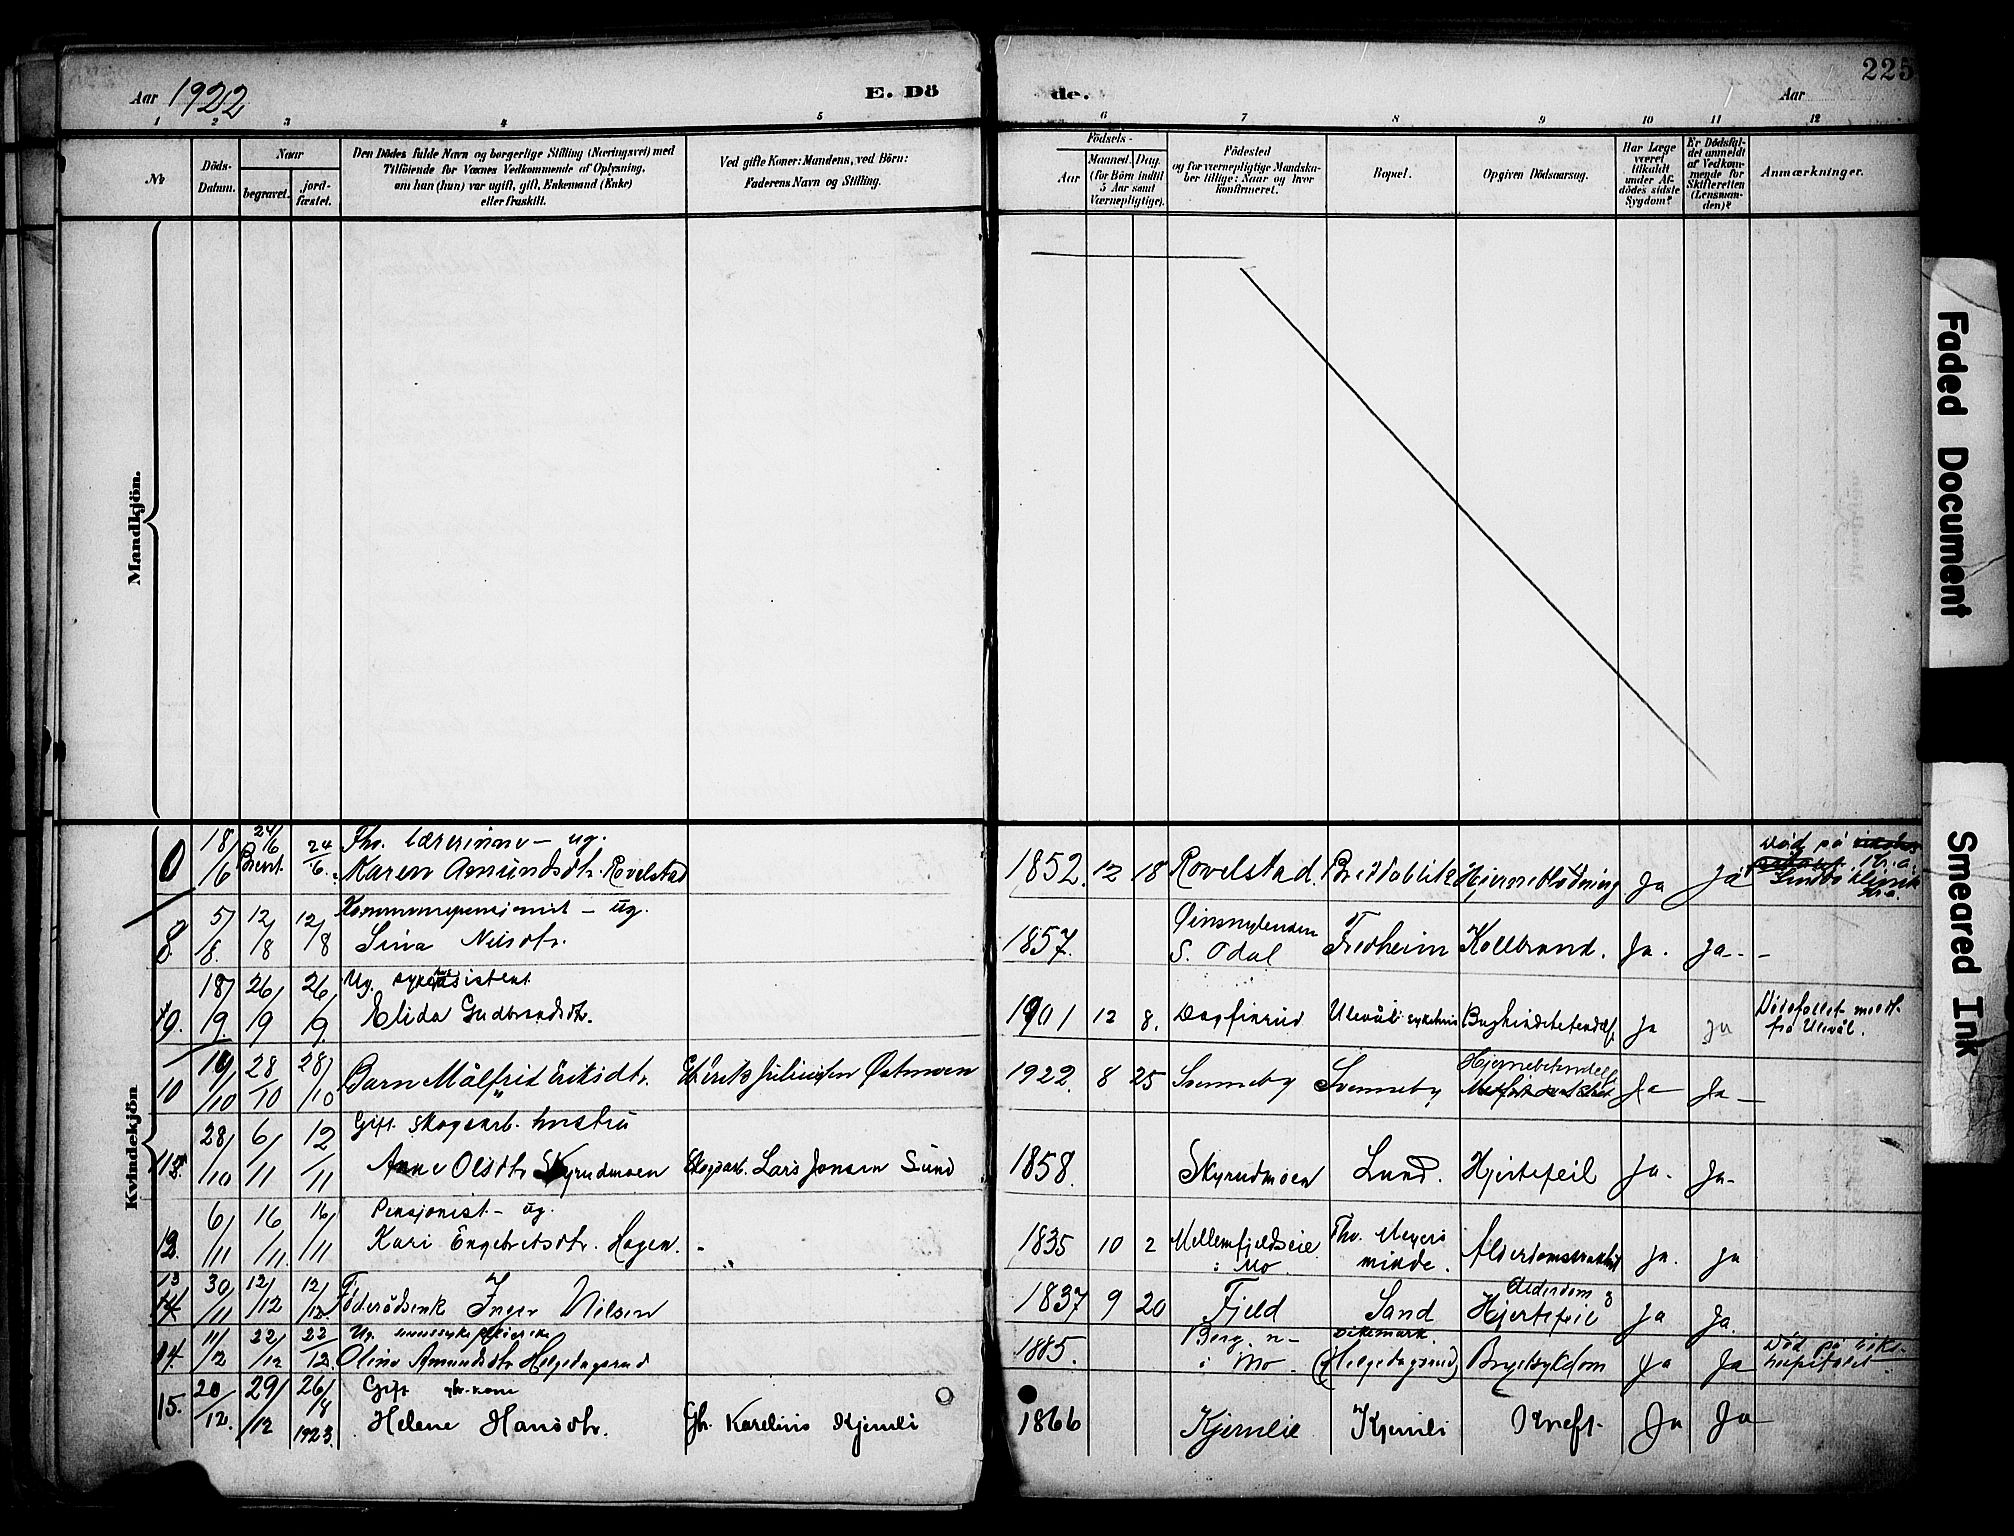 Aar 1922
E. Dö
de.
Aar
225
1 2 3 4 5 6 7 8 9 10 11 12
Nr
Döds-
Datum.
Naar
begravet.
jord-
fæstet.
Den Dödes fulde Navn og borgerlige Stilling (Næringsvei) med
Tilföiende for Voxnes Vedkommende af Oplysning,
om han (hun) var ugift, gift, Enkemand (Enke)
eller fraskilt.
Ved gifte Koner: Mandens, ved Börn:
Faderens Navn og Stilling.
Födsels-
Aar
Maaned. Dag.
(for Börn indtil
5 Aar samt
Værnepligtige).
Födested
og for værnepligtige Mandska-
ber tillige: Naar og hvor
konfirmeret.
Bopæl.
Opgiven Dödsaarsag.
Har Læge
været
tilkaldt
under Af-
dödes sidste
Sygdom?
Er Dödsfal-
det anmeldt
af Vedkom-
mende for
Skifteretten
(Lensman-
den)?
Anmærkninger.
Mandkjön.
Kvindekjön
18/6 24/6 Brent. 24/6 Fhv. lærerinne - ug.
Karen Amundsdtr. Rovelstad 1852. 12 18 Rovelstad. Breidablik Hjerneblödning Ja Ja Död på
8. 5/8. 12/8 12/8 Kommunepensjonist - ug.
Sina Nilsdtr. 1857. S. Odal Fredheim Koldbrand. Ja. Ja. -
9. 18/9. 26/9 26/9. Ug.
Elida Gudbrandsdtr. 1901 12 8. Dagfinrud Ulevål sykehus Ja Ja Dödsfallet meldt
fra Ulevål.
10 19/10 28/10 28/10 Barn Målfrid Eriksdtr. Østmoen 1922. 8 25 Svenneby Svenneby Hjernebetendelse Ja Ja
28/10 6/11 12/11 Gift skogsarb. hustru
Anne Olsdtr Skyrudmoen Skogsarb. Lars Jonsen Sund 1858. Skyrudmoen Lund. Hjertefeil Ja. Ja-
12. 6/11 16/11. 16/11 Pensjonist - ug.
Kari Engebretsdtr. Hagen. - 1835 10 2 Mellemfjeldseie
i Mo. Thv. Meyers
minde. Ja. Ja
13 30/11 12/12 12/12. Föderådsenk Inger Nilsen 1837 9 20 Fjeld Sand Alderdom &
Hjertefeil Ja Ja.
14. 11/12 22/12 22/12. Ug.
Oline Amundsdtr Helgedagsrud 1885. Berg n-
i Mo. Dikemark.
(Helgedagsrud) Brystsykdom Ja Ja Död på riks-
hospitalet
15. 20/12. 29/12 26/8 1923. Gift
Helene Hansdtr. Gbr. Karelius Kjernli 1866 Kjernlie Kjernli Kreft. Ja Ja
Faded Document
Smeared Ink